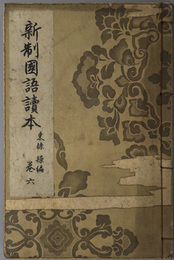 新制國語讀本
東條操編
卷六